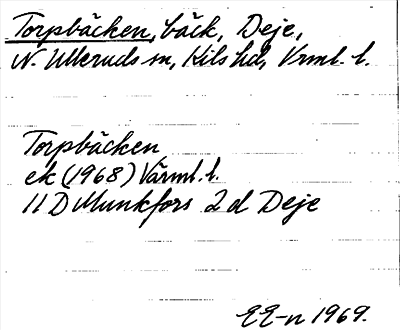 Torpbäcken, bäck, Deje,
N. Ulleruds sn, Kils hd, Vrml. l.
Torpbäcken
ek (1968) Värml. l.
11 D Munkfors 2 d Deje
EE-n 1969.